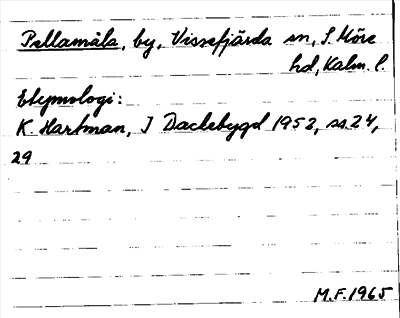 Pellamåla, by, Vissefjärda sn, S. Möre
hd, Kalm. l.
Etymologi:
K. Hartman, I Dackebygd 1953, ss. 24,
29
M.F. 1965